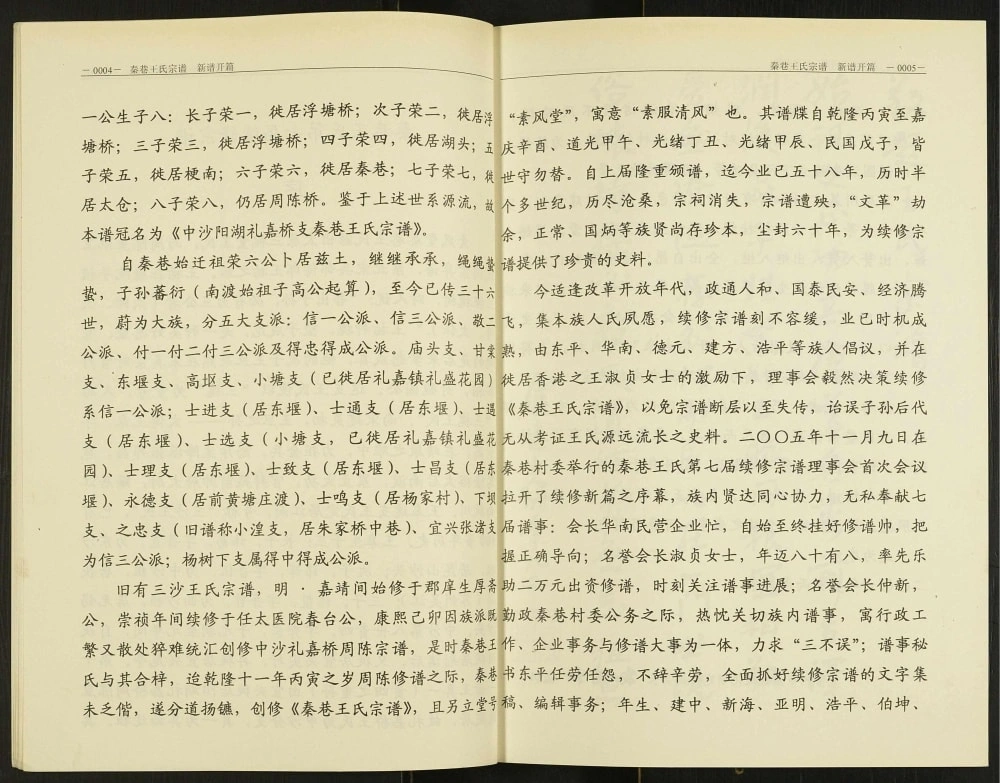 －0004－ 秦巷王氏宗谱 新谱开篇
一公生子八：长子荣一，徙居浮塘桥；次子荣二，徙居浮
塘桥；三子荣三，徙居浮塘桥；四子荣四，徙居湖头；五
子荣五，徙居梗南；六子荣六，徙居秦巷；七子荣七，徙
居太仓；八子荣八，仍居周陈桥。鉴于上述世系源流，故
本谱冠名为《中沙阳湖礼嘉桥支秦巷王氏宗谱》。
自秦巷始迁祖荣六公卜居兹土，继继承承，绳绳蛰
蛰，子孙蕃衍（南渡始祖子高公起算），至今已传三十六
世，蔚为大族，分五大支派：信一公派、信三公派、敬二
公派、付一付二付三公派及得忠得成公派。庙头支、甘棠
支、东堰支、高堀支、小塘支（已徙居礼嘉镇礼盛花园）
系信一公派；士进支（居东堰）、士通支（居东堰）、士遇
支（居东堰）、士选支（小塘支，已徙居礼嘉镇礼盛花
园）、士理支（居东堰）、士致支（居东堰）、士昌支（居东
堰）、永德支（居前黄塘庄渡）、士鸣支（居杨家村）、下坝
支、之忠支（旧谱称小湟支，居朱家桥中巷）、宜兴张渚支
为信三公派；杨树下支属得中得成公派。
旧有三沙王氏宗谱，明·嘉靖间始修于郡庠生厚斋
公，崇祯年间续修于任太医院春台公，康熙己卯因族派既
繁又散处猝难统汇创修中沙礼嘉桥周陈宗谱，是时秦巷王
氏与其合梓，迨乾隆十一年丙寅之岁周陈修谱之际，秦巷
未乏偕，遂分道扬镳，创修《秦巷王氏宗谱》，且另立堂号
秦巷王氏宗谱 新谱开篇 －0005－
“素风堂”，寓意“素服清风”也。其谱牒自乾隆丙寅至嘉
庆辛酉、道光甲午、光绪丁丑、光绪甲辰、民国戊子，皆
世守勿替。自上届隆重颁谱，迄今业已五十八年，历时半
个多世纪，历尽沧桑，宗祠消失，宗谱遭殃，“文革”劫
余，正常、国炳等族贤尚存珍本，尘封六十年，为续修宗
谱提供了珍贵的史料。
今适逢改革开放年代，政通人和、国泰民安、经济腾
飞，集本族人氏夙愿，续修宗谱刻不容缓，业已时机成
熟，由东平、华南、德元、建方、浩平等族人倡议，并在
徙居香港之王淑贞女士的激励下，理事会毅然决策续修
《秦巷王氏宗谱》，以免宗谱断层以至失传，诒误子孙后代
无从考证王氏源远流长之史料。二〇〇五年十一月九日在
秦巷村委举行的秦巷王氏第七届续修宗谱理事会首次会议
拉开了续修新篇之序幕，族内贤达同心协力，无私奉献七
届谱事：会长华南民营企业忙，自始至终挂好修谱帅，把
握正确导向；名誉会长淑贞女士，年迈八十有八，率先乐
助二万元出资修谱，时刻关注谱事进展；名誉会长仲新，
勤政秦巷村委公务之际，热忱关切族内谱事，寓行政工
作、企业事务与修谱大事为一体，力求“三不误”；谱事秘
书东平任劳任怨，不辞辛劳，全面抓好续修宗谱的文字集
稿、编辑事务；年生、建中、新海、亚明、浩平、伯坤、